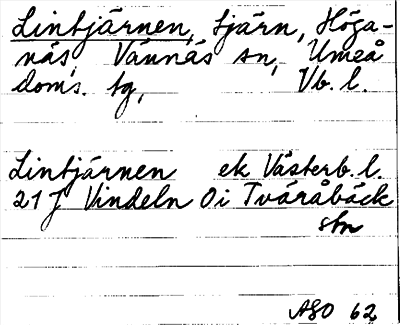 Lintjärnen, tjärn, Höga-
näs, Vännäs sn, Umeå
doms. tg, Vb. l.
Lintjärnen ek Västerb. l.
21 J Vindeln Oi Tväråbäck
stn
ASO 62